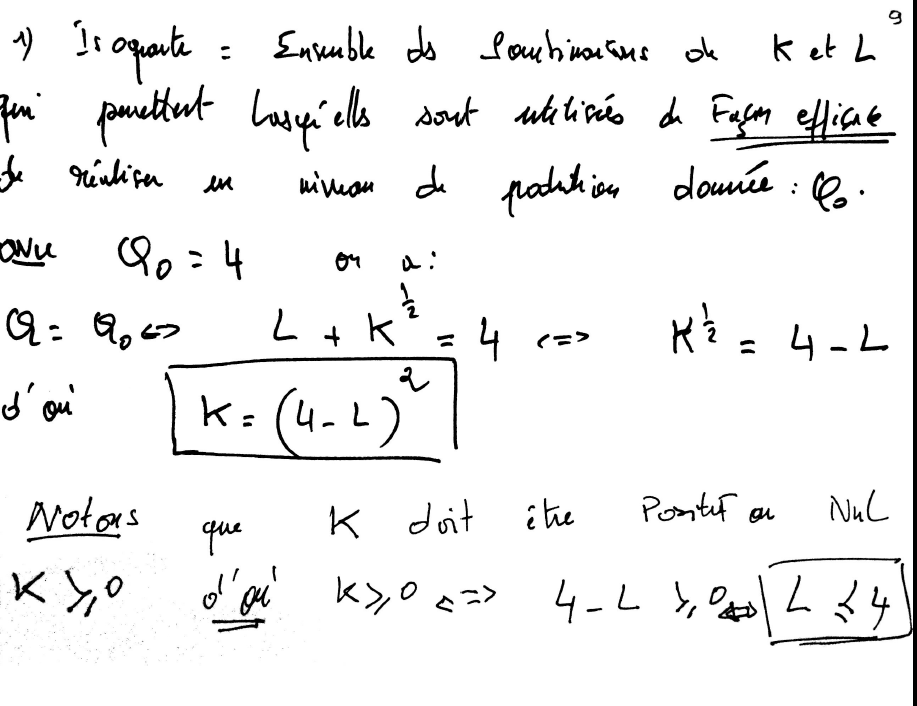 9
1) Isoquante = Ensemble des Combinaisons de K et L
qui permettent lorsqu'elles sont utilisées de Façon efficace
de réaliser un niveau de production donnée : Q₀.
Q₀ = 4 on a :
Q = Q₀ <=> L + K^{1/2} = 4 <=> K^{1/2} = 4 - L
d'où K = (4 - L)^2
Notons que K doit être Positif ou Nul
K ⩾ 0 d'où K ⩾ 0 <=> 4 - L ⩾ 0 <=> L ⩽ 4